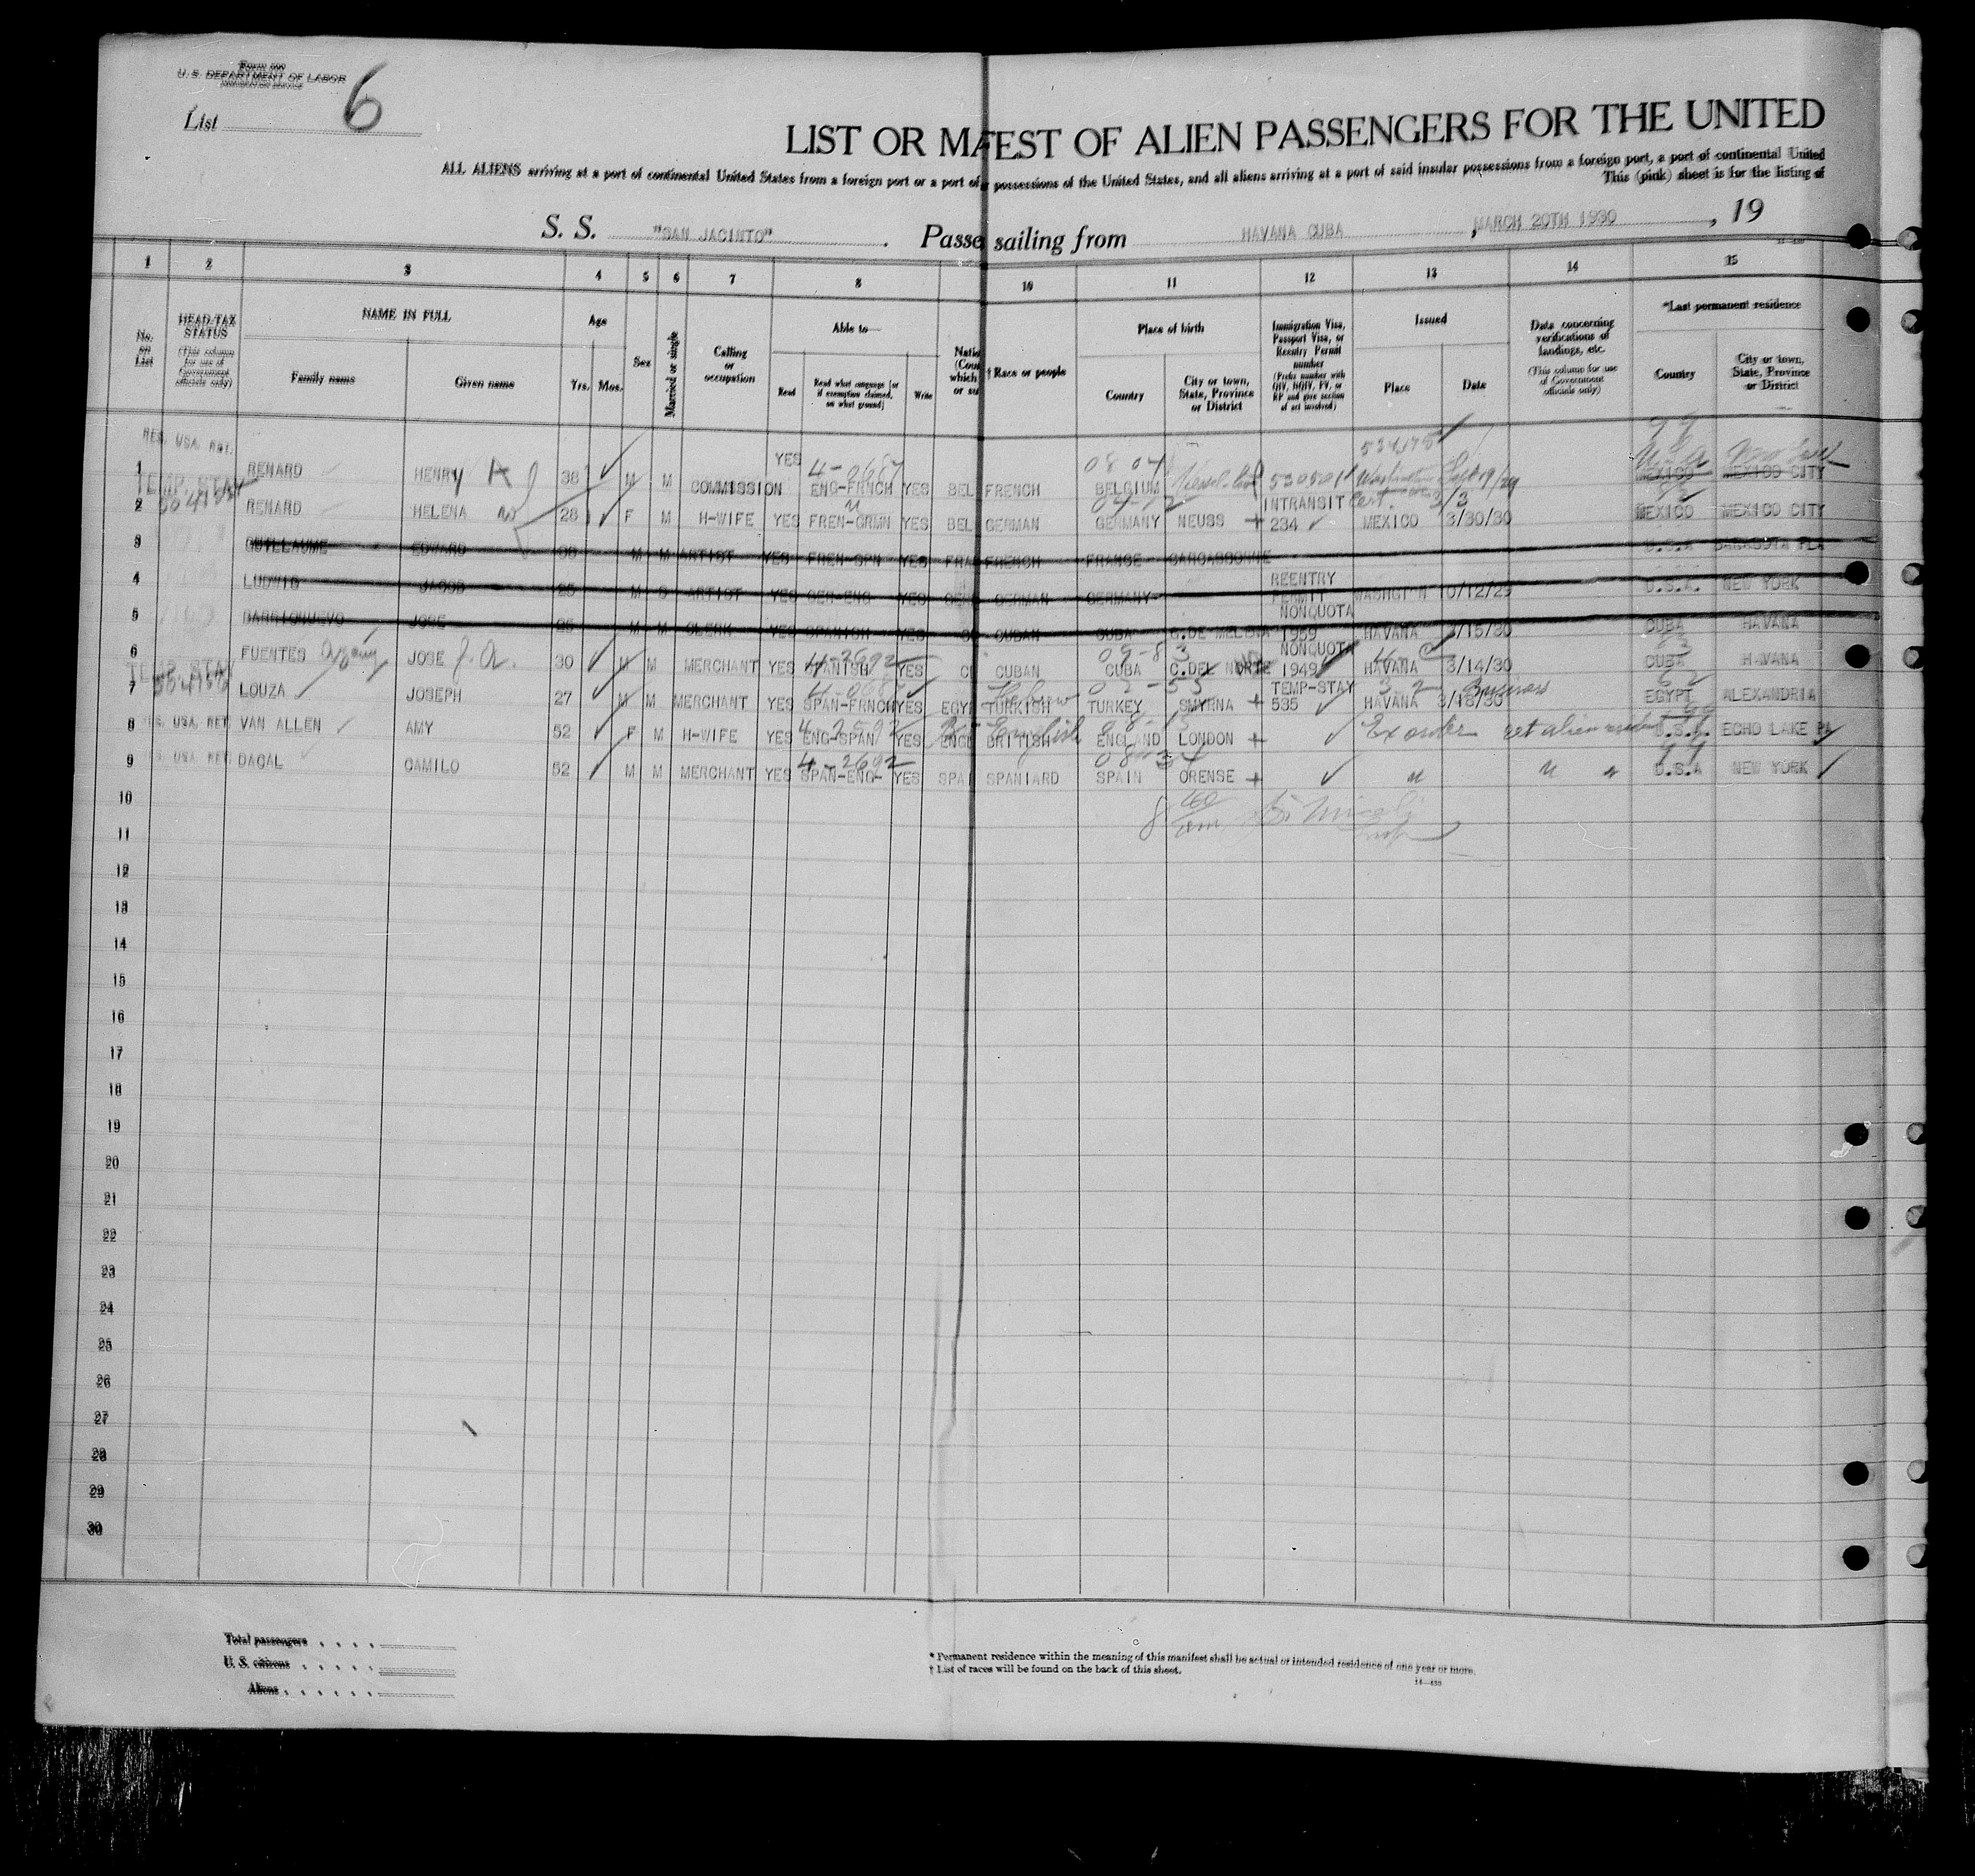 Form 500
U. S. DEPARTMENT OF LABOR
IMMIGRATION SERVICE
List 6
LIST OR MA FEST OF ALIEN PASSENGERS FOR THE UNITED
ALL ALIENS arriving at a port of continental United States from a foreign port or a port of possessions of the United States, and all aliens arriving at a port of said insular possessions from a foreign port, a port of continental United
This (pink) sheet is for the listing of
S. S. "SAN JACINTO" . Passe sailing from HAVANA CUBA , MARCH 20TH 1930 , 19
1 2 3 4 5 6 7 8 10 11 12 13 14 15
No. on List
HEAD-TAX STATUS (This column for use of Government officials only)
NAME IN FULL
Family name Given name
Age
Yrs. Mos.
Sex
Married or single
Calling or occupation
Able to—
Read Read what language [or if exemption claimed, on what ground] Write
Natio (Cou which or su
† Race or people
Place of birth
Country City or town, State, Province or District
Immigration Visa, Passport Visa, or Reentry Permit number
(Prefix number with QIV, NQIV, PV, or RP and give section of act involved)
Issued
Place Date
Data concerning verifications of landings, etc.
(This column for use of Government officials only)
*Last permanent residence
Country City or town, State, Province or District
RES. USA. RET. 534175
1 RENARD HENRY A 38 M M COMMISSION YES 4-0687 ENG-FRNCH YES BEL FRENCH 08 04 BELGIUM 520501 Washington Sept 19/29 99 USA MEXICO MEXICO CITY
TEMP. STAY
2 RENARD HELENA 28 F M H-WIFE YES FREN-GRMN YES BEL GERMAN GERMANY NEUSS + INTRANSIT 234 MEXICO 3/30/30 MEXICO MEXICO CITY
3 GUILLAUME EDWARD M M ARTIST YES FREN-SPN YES FRA FRENCH FRANCE CARCASSONNE U.S.A SARASOTA FLA
4 LUDWIG JACOB 25 M S ARTIST YES GER-ENG YES GERMAN GERMANY REENTRY PERMIT WASHGT'N 0/12/29 U.S.A. NEW YORK
5 BARRIONUEVO JOSE M M CLERK YES SPANISH YES CUBAN CUBA G.DE MELENA NONQUOTA 1959 HAVANA 3/15/30 CUBA HAVANA
6 FUENTES JOSE J. A. 30 M M MERCHANT YES 4-2692 SPANISH YES CUBAN CUBA C.DEL NORTE NONQUOTA 1949 HAVANA 3/14/30 CUBA HAVANA
TEMP. STAY
7 LOUZA JOSEPH 27 M M MERCHANT YES 4-0687 SPAN-FRNCH YES EGYP Hebrew TURKISH 02-55 TURKEY SMYRNA + TEMP-STAY 535 HAVANA 3/18/30 Business EGYPT ALEXANDRIA
8 RES. USA. RET VAN ALLEN AMY 52 F M H-WIFE YES ENG-SPAN YES ENGL English BRITISH ENGLAND LONDON + Ex order ret alien resident U.S.A. ECHO LAKE PA
9 RES. USA. RET DACAL CAMILO 52 M M MERCHANT YES 4-2692 SPAN-ENG- YES SPAI SPANIARD SPAIN ORENSE + " " " 99 U.S.A NEW YORK
10
11
12
13
14
15
16
17
18
19
20
21
22
23
24
25
26
27
28
29
30
Total passengers
U. S. citizens
Aliens
* Permanent residence within the meaning of this manifest shall be actual or intended residence of one year or more.
† List of races will be found on the back of this sheet.
14—430